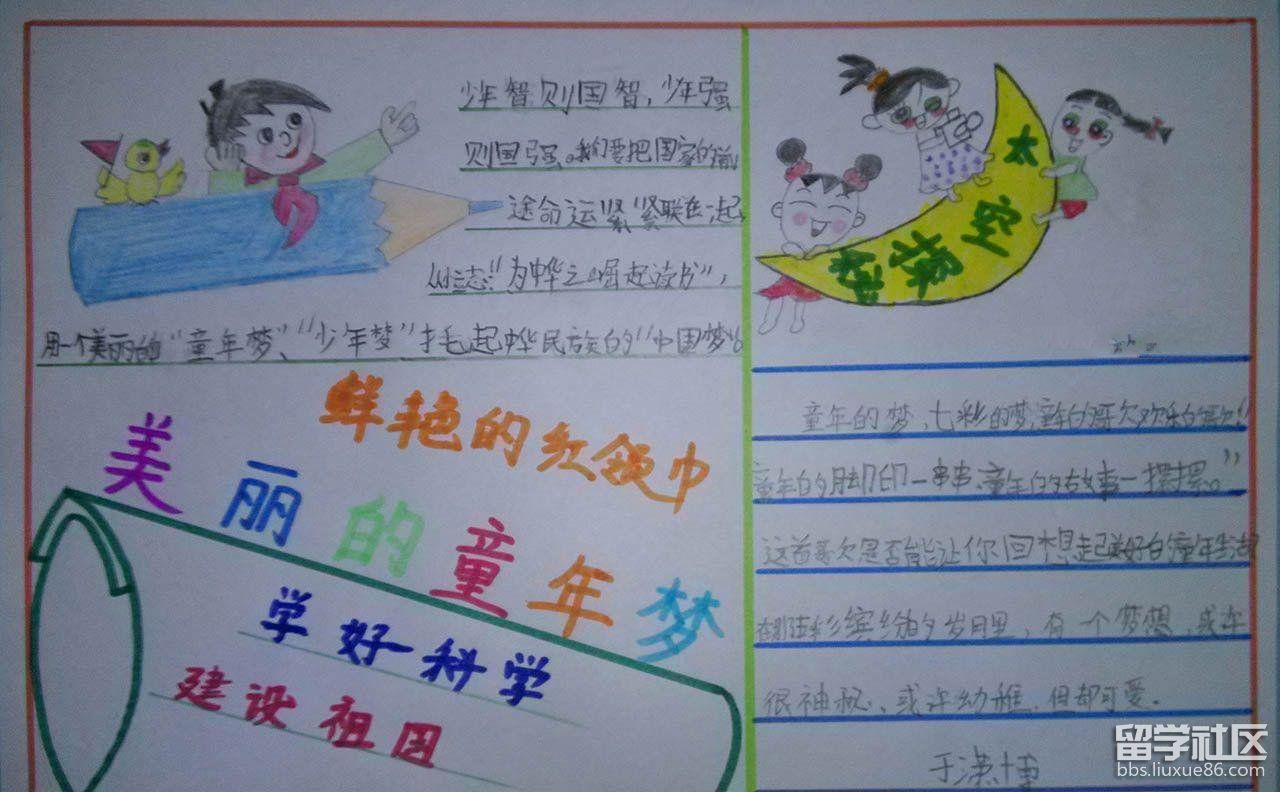 少年智则国智，少年强
则国强。我们要把国家的前
途命运"紧"紧联在一起，
从立志"为中华之崛起读书"，
用一个美丽的"童年梦"、"少年梦"托起中华民族的"中国梦"。
鲜艳的红领巾
美丽的童年梦
学好科学
建设祖国
太空探秘
童年的梦，七彩的梦，童年的歌欢乐的歌，
童年的脚印一串串、童年的故事一摞摞。"
这首歌是否能让你回想起美好的童年生活
在那五彩缤纷的岁月里，有一个梦想，或许
很神秘、或许幼稚，但都可爱。
于潇博
留学社区
bbs.liuxue86.com